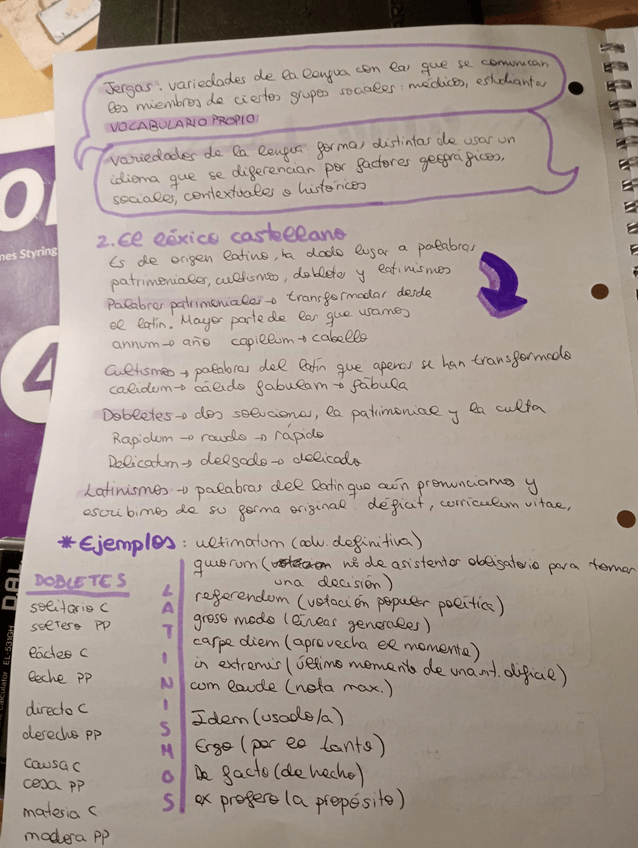 Jergas: variedades de la lengua con las que se comunican
los miembros de ciertos grupos sociales: médicos, estudiantes
VOCABULARIO PROPIO
variedades de la lengua formas distintas de usar un
idioma que se diferencian por factores geográficos,
sociales, contextuales o históricos
2. El léxico castellano
Es de origen latino, ha dado lugar a palabras
patrimoniales, cultismos, dobletes y latinismos
Palabras patrimoniales → transformadas desde
el latín. Mayor parte de las que usamos
annum → año capillum → cabello
Cultismos → palabras del latín que apenas se han transformado
calidum → cálido fabulam → fábula
Dobletes → dos soluciones, la patrimonial y la culta
Rapidum → raudo → rápido
Delicatum → delgado → delicado
Latinismos → palabras del latín que aún pronunciamos y
escribimos de su forma original: déficit, curriculum vitae,
* Ejemplos: ultimatum (adv. definitiva)
quorum (nº de asistentes obligatorio para tomar
una decisión)
referendum (votación popular política)
groso modo (líneas generales)
carpe diem (aprovecha el momento)
in extremis (último momento de una sit. dificil)
cum laude (nota max.)
Idem (usado/a)
Ergo (por lo tanto)
De facto (de hecho)
ex profeso (a propósito)
LATINISMOS
DOBLETES
solitario C
soltero PP
lácteo C
leche PP
directo C
derecho PP
causa C
cosa PP
materia C
madera PP
nes Styring
4
Calculator EL-531GH